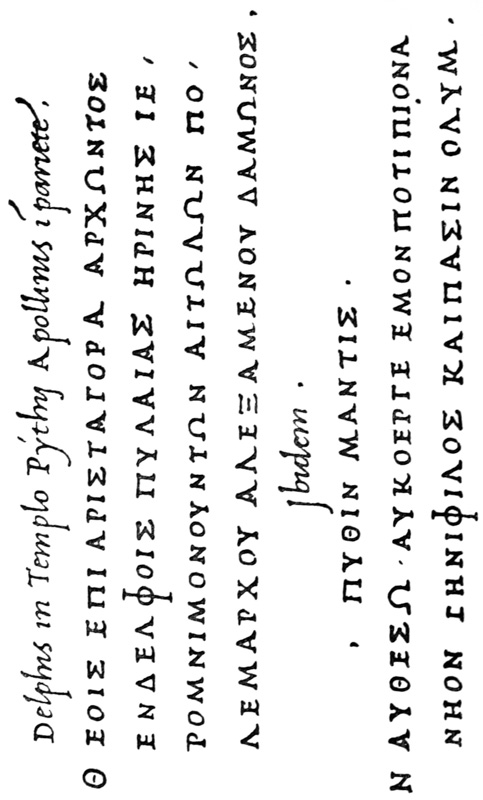 Delphis in Templo Pythij Apollinis ī pariete,
Θ ΕΟΙΣ ΕΠΙΑΡΙΣΤΑΓΟΡΑ ΑΡΧΩΝΤΟΣ
ΕΝΔΕΛΦΟΙΣ ΠΥΛΑΙΑΣ ΗΡΙΝΗΣ ΙΕ,
ΡΟΜΝΙΜΟΝΟΥΝΤΩΝ ΑΙΤΩΛΩΝ ΠΟ,
ΛΕΜΑΡΧΟΥ ΑΛΕΞΑΜΕΝΟΥ ΔΑΜΩΝΟΣ,
Ibidem.
, ΠΥΘΙΝ ΜΑΝΤΙΣ.
Ν ΑΥΘΕΣΩ·ΛΥΚΟΕΡΓΕ ΕΜΟΝΠΟΤΙΠΙΟΝΑ
ΝΗΟΝ ΓΗΝΙΦΙΛΟΣ ΚΑΙΠΑΣΙΝ ΟΛΥΜ.